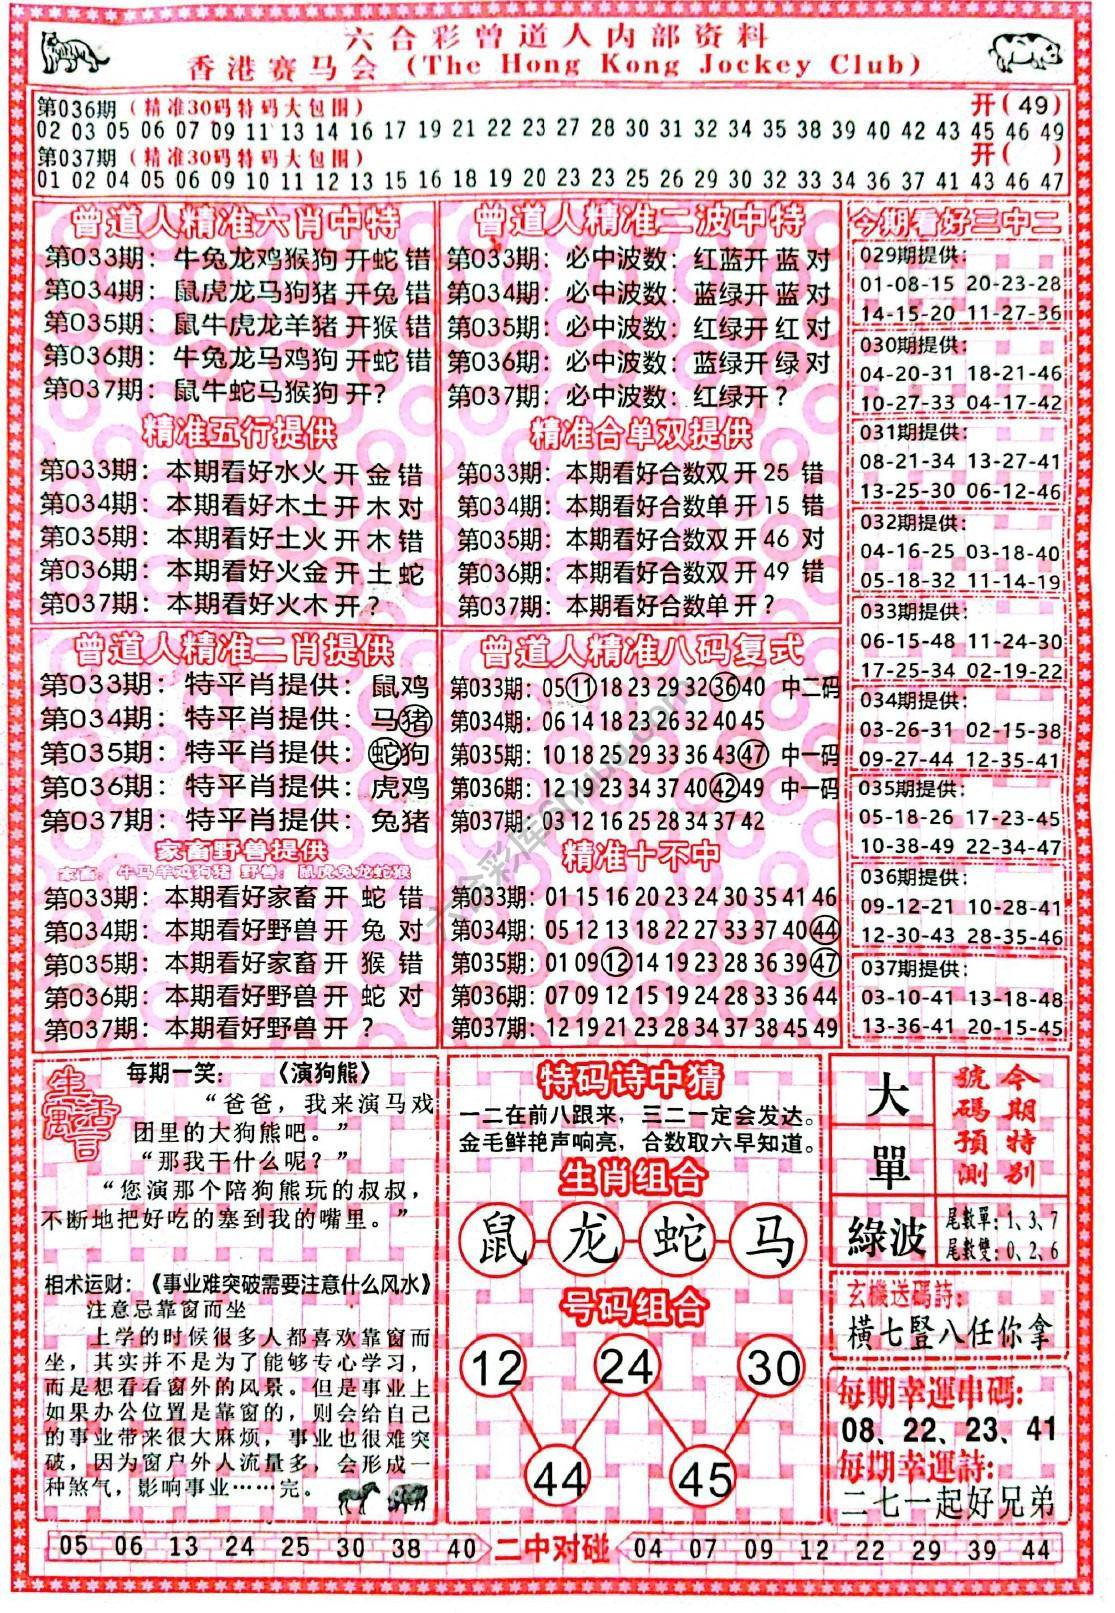 六合彩曾道人内部资料
香港赛马会(The Hong Kong Jockey Club)
第036期(精准30码特码大包围) 开(49)
02 03 05 06 07 09 11 13 14 16 17 19 21 22 23 27 28 30 31 32 34 35 38 39 40 42 43 45 46 49
第037期(精准30码特码大包围) 开( )
01 02 04 05 06 09 10 11 12 13 15 16 18 19 20 23 23 25 26 29 30 32 33 34 36 37 41 43 46 47
曾道人精准六肖中特
第033期：牛兔龙鸡猴狗开蛇错
第034期：鼠虎龙马狗猪开兔错
第035期：鼠牛虎龙羊猪开猴错
第036期：牛兔龙马鸡狗开蛇错
第037期：鼠牛蛇马猴狗开?
精准五行提供
第033期：本期看好水火开金错
第034期：本期看好木土开木对
第035期：本期看好土火开木错
第036期：本期看好火金开土蛇
第037期：本期看好火木开?
曾道人精准二波中特
第033期：必中波数：红蓝开蓝对
第034期：必中波数：蓝绿开蓝对
第035期：必中波数：红绿开红对
第036期：必中波数：蓝绿开绿对
第037期：必中波数：红绿开?
精准合单双提供
第033期：本期看好合数双开25错
第034期：本期看好合数单开15错
第035期：本期看好合数双开46对
第036期：本期看好合数双开49错
第037期：本期看好合数单开?
今期看好三中二
029期提供：
01-08-15 20-23-28
14-15-20 11-27-36
030期提供：
04-20-31 18-21-46
10-27-33 04-17-42
031期提供：
08-21-34 13-27-41
13-25-30 06-12-46
032期提供：
04-16-25 03-18-40
05-18-32 11-14-19
033期提供：
06-15-48 11-24-30
17-25-34 02-19-22
034期提供：
03-26-31 02-15-38
09-27-44 12-35-41
035期提供：
05-18-26 17-23-45
10-38-49 22-34-47
036期提供：
09-12-21 10-28-41
12-30-43 28-35-46
037期提供：
03-10-41 13-18-48
13-36-41 20-15-45
曾道人精准二肖提供
第033期：特平肖提供：鼠鸡
第034期：特平肖提供：马猪
第035期：特平肖提供：蛇狗
第036期：特平肖提供：虎鸡
第037期：特平肖提供：兔猪
家畜野兽提供
家畜：牛马羊鸡狗猪 野兽：鼠虎兔龙蛇猴
第033期：本期看好家畜开 蛇 错
第034期：本期看好野兽开 兔 对
第035期：本期看好家畜开 猴 错
第036期：本期看好野兽开 蛇 对
第037期：本期看好野兽开 ?
曾道人精准八码复式
第033期：05 11 18 23 29 32 36 40 中二码
第034期：06 14 18 23 26 32 40 45
第035期：10 18 25 29 33 36 43 47 中一码
第036期：12 19 23 34 37 40 42 49 中一码
第037期：03 12 16 25 28 34 37 42
精准十不中
第033期：01 15 16 20 23 24 30 35 41 46
第034期：05 12 13 18 22 27 33 37 40 44
第035期：01 09 12 14 19 23 28 36 39 47
第036期：07 09 12 15 19 24 28 33 36 44
第037期：12 19 21 23 28 34 37 38 45 49
六合彩库shubu.com
生活寓言
每期一笑： 《演狗熊》
“爸爸，我来演马戏
团里的大狗熊吧。”
“那我干什么呢？”
“您演那个陪狗熊玩的叔叔，
不断地把好吃的塞到我的嘴里。”
相术运财：《事业难突破需要注意什么风水》
注意忌靠窗而坐
上学的时候很多人都喜欢靠窗而
坐，其实并不是为了能够专心学习，
而是想看看窗外的风景。但是事业上
如果办公位置是靠窗的，则会给自己
的事业带来很大麻烦，事业也很难突
破，因为窗户外人流量多，会形成一
种煞气，影响事业……完。
特码诗中猜
一二在前八跟来，三二一定会发达。
金毛鲜艳声响亮，合数取六早知道。
生肖组合
鼠 龙 蛇 马
号码组合
12 24 30
44 45
大
單
綠波
今期特别
號碼預測
尾數單：1、3、7
尾數雙：0、2、6
玄機送碼詩：
橫七豎八任你拿
每期幸運串碼：
08、22、23、41
每期幸運詩：
二七一起好兄弟
05 06 13 24 25 30 38 40 二中对碰 04 07 09 12 22 29 39 44